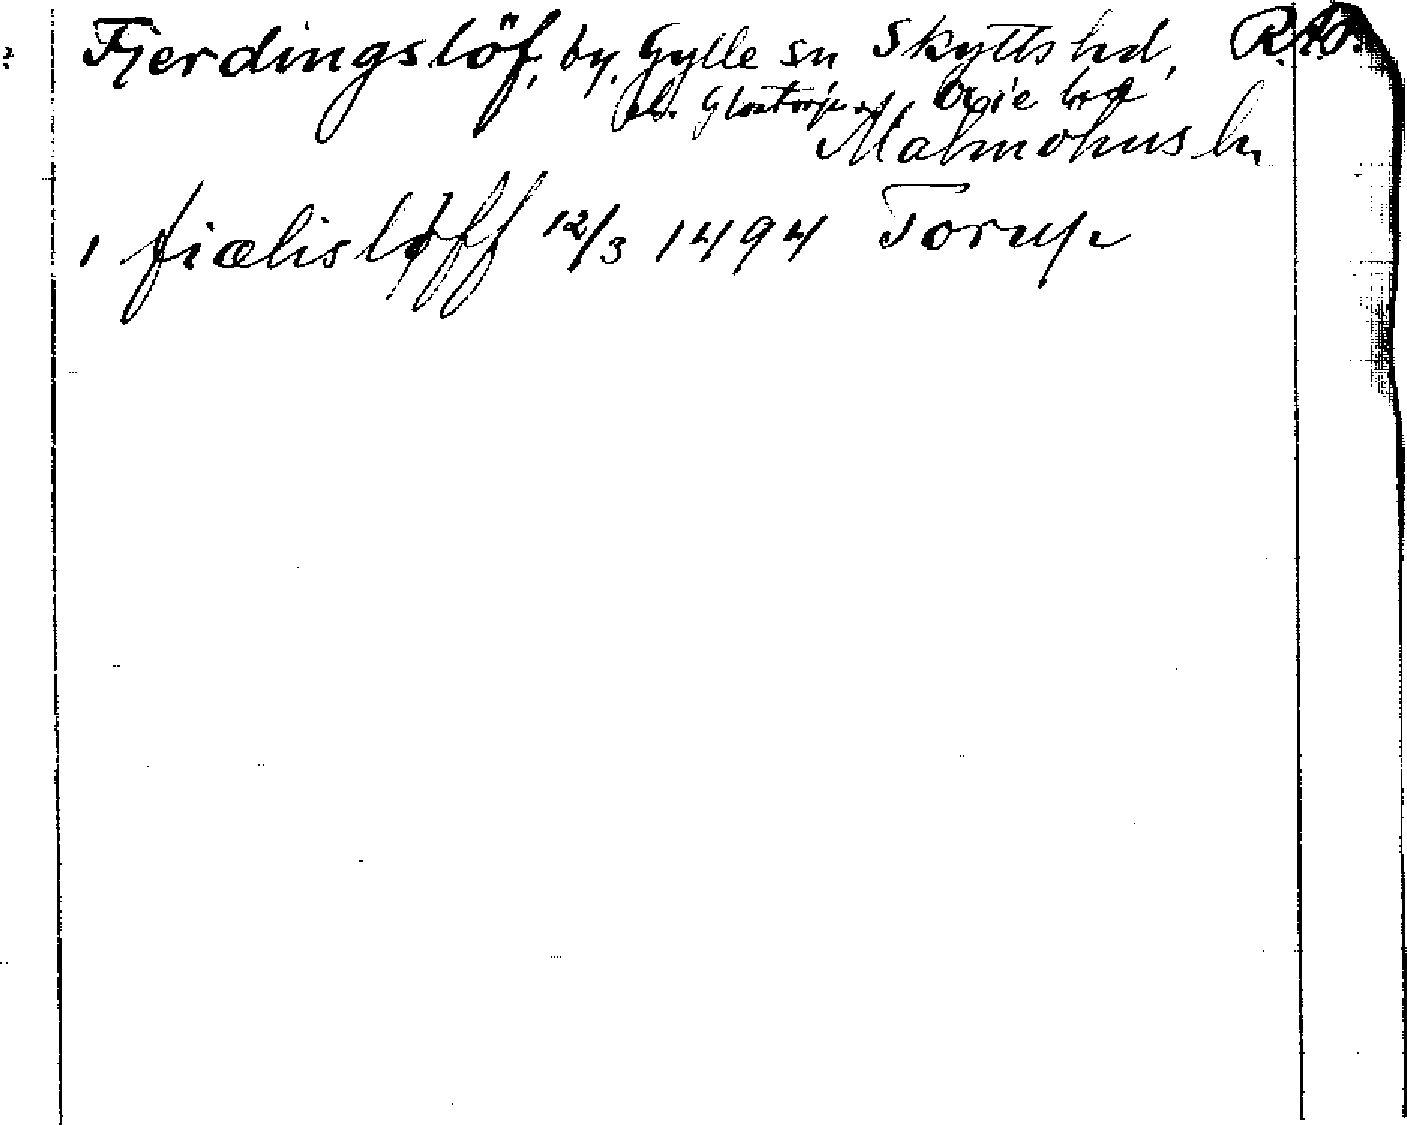 Fjerdingslöf, by, Gylle sn Skytts hd, R.A.P.
el. Glostorps sn, Oxie hd
Malmöhus ln
i fiælisløff 12/3 1494 Torup